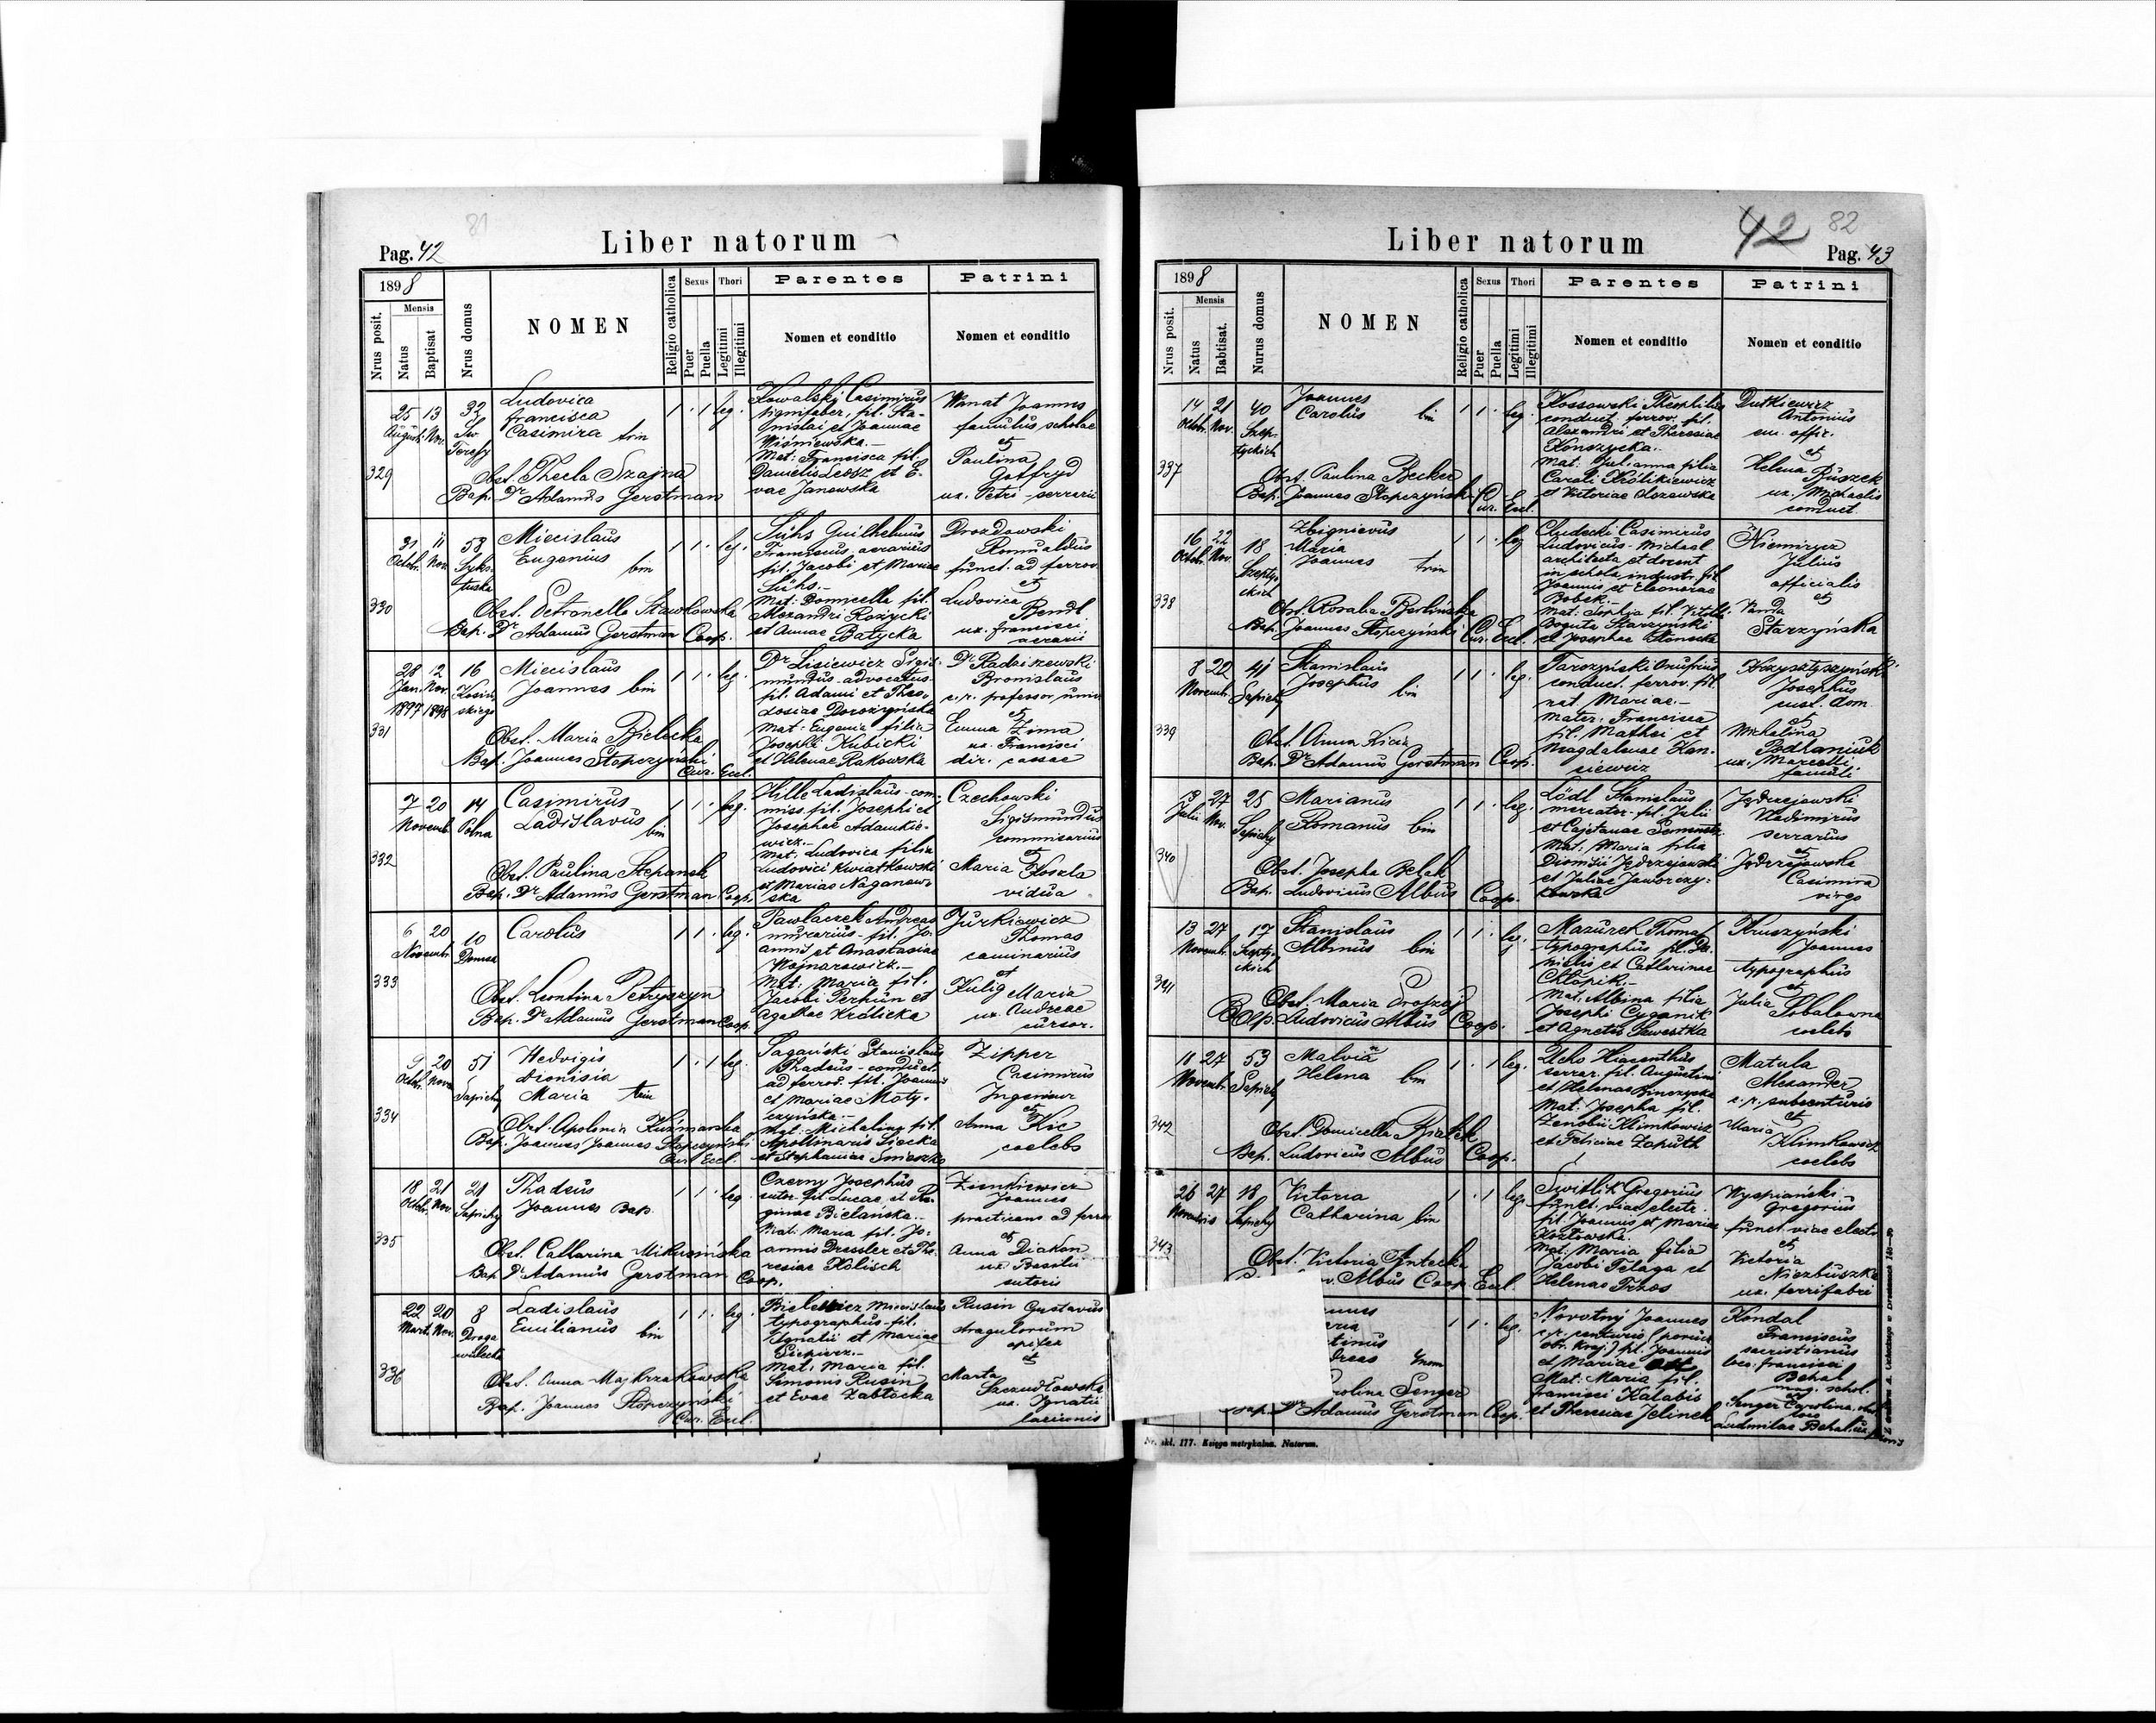 81
Liber natorum
Pag. 42
1898
Nrus posit.
Mensis
Natus
Baptisat
Nrus domus
NOMEN
Religio catholica
Sexus
Puer
Puella
Thori
Legitimi
Illegitimi
Parentes
Nomen et conditio
Patrini
Nomen et conditio
329
25 Augusti
13 Nov.
32 Św. Teresy
Ludovica
Francisca
Casimira trin
1 1 leg.
Obst. Thecla Szajna
Bap. Dr Adamus Gerstman
Kowalski Casimirus
lignifaber, fil. Sta-
nislai et Joannae
Wiśniewska.-
Mat: Francisca fil.
Danielis et E-
vae Janowska
Wanat Joannes
famulus scholae
et
Paulina
Gotfryd
ux. Petri - serrarii
330
31 Octobr.
11 Nov.
58 Sykstuska
Miecislaus
Eugenius bin
1 1 leg.
Obst. Petronella Stawkowska
Bap. Dr Adamus Gerstman Coop.
Sühs Guilhelmus
Franciscus aerarius
fil. Jacobi et Mariae
Sühs.-
Mat: Domicella fil.
Alexandri Rożycki
et Annae Batycka
Drozdowski
Romualdus
funct. ad ferrov.
et
Ludovica
Bendl
ux. Francisci
aerarii
331
28 Jan. 1897
12 Nov. 1898
16 Kosinskiego
Miecislaus
Joannes bin
1 1 leg.
Obst. Maria Bielecka
Bap. Joannes Stopczyński
Cur. Eccl.
Dr Lisiewicz Sigis-
mundus advocatus
fil. Adami et Theo-
dosiae Dorożyńska
Mat: Eugenia filia
Josephi Kubicki
et Helenae Rakowska
Dr Radziszewski
Bronislaus
c. r. professor univ.
et
Emma Zima
ux. Francisci
dir. cassae
332
7 20
Novemb.
14 Polna
Casimirus
Ladislavus bin
1 1 leg.
Obst. Paulina Stepanek
Bap. Dr Adamus Gerstman Coop.
Hille Ladislaus - com-
miss. fil. Josephi et
Josephae Adamkie-
wicz.-
Mat: Ludovica filia
Ludovici Kwiatkowski
et Mariae Naganow-
ska
Czechowski
Sigismundus
commisarius
et
Maria Koszla
vidua
333
6 20
Novemb.
10
Carolus
1 1 leg.
Obst. Leontina Petryszyn
Bap. Dr Adamus Gerstman Coop.
Pawlaczek Andreas
murarius - fil. Jo-
annis et Anastasiae
Wojnarowicz.-
Mat: Maria fil.
Jacobi Perhun et
Agathae Królicka
Jurkiewicz
Thomas
caminarius
et
Kulig Maria
ux. Andreae
cursor.
334
9 Octobr.
20 Nov.
51 Sapiehy
Hedvigis
Dionisia
Maria trin
1 1 leg.
Obst. Apolonia Kuźmarska
Bap. Joannes Joannes Stopczyński
Cur. Eccl.
Sagański Stanislaus
Thadeus - conduct.
ad ferrov. fil. Joannis
et Mariae Moty-
czyńska.-
Mat: Michalina fil.
Apollinaris Siecka
et Stephaniae
Zipper
Casimirus
Ingenieur
et
Anna Kic
coelebs
335
18 Octobr.
21 Nov.
21 Sapiehy
Thadeus
Joannes Bap.
1 1 leg.
Obst. Catharina Mikusińska
Bap. Dr Adamus Gerstman Coop.
Czerny Josephus
sutor fil. Lucae et Re-
ginae Bielańska.-
Mat: Maria fil. Jo-
annis Dressler et The-
resiae Kolisch
Zienkiewicz
Joannes
practicans ad ferrov
et
Anna Diakon
ux. Basilii
sutoris
336
22 Mart.
20 Nov.
8 Droga wulecka
Ladislaus
Emilianus bin
1 1 leg.
Obst. Anna Majkrzakowska
Bap. Joannes Stopczyński
Cur. Eccl.
typographus - fil.
Ignatii et Mariae
Mat: Maria fil.
Simonis Rusin
et Evae Zabłocka
Rusin Gustavus
stragulorum
opifex
et
Marta
Szczudłowska
ux. Ignatii
lanionis
42 82
Liber natorum
Pag. 43
1898
Nrus posit.
Mensis
Natus
Babtisat.
Nurus domus
NOMEN
Religio catholica
Sexus
Puer
Puella
Thori
Legitimi
Illegitimi
Parentes
Nomen et conditio
Patrini
Nomen et conditio
337
14 Octobr.
21 Nov.
40 Szeptyckich
Joannes
Carolus bin
1 1 leg.
Obst. Paulina Becker
Bap. Joannes Stopczyński Cur. Eccl.
Kossowski Theophilus
conduct. ferrov. fil.
Alexandri et Theresiae
Konszycka.-
Mat: Julianna filia
Caroli Królikiewicz
et Victoriae Olszewska
Dutkiewicz
Antonius
em. offic.
et
Helena Buszek
ux. Michaelis
conduct.
338
16 Octobr.
22 Nov.
18 Szeptyckich
Zbignievus
Maria
Joannes trin
1 1 leg
Obst. Rosalia Berlinska
Bap. Joannes Stopczyński Cur. Eccl.
Casimirus
Ludovicus - Michael
architecta et docent
in schola industr. fil.
Joannis et Eleonorae
Bobek.-
Mat: Sophia fil. Vitalis
Boguta Starzyński
et Josephae Słonecka
Niemirycz
Julius
officialis
et
Vanda
Starzyńska
339
8 22
Novemb.
41 Sapiehy
Stanislaus
Josephus bin
1 1 leg.
Obst. Anna Kicia
Bap. Dr Adamus Gerstman Coop.
Tarczyński Onufrius
conduct. ferrov. fil.
nat. Mariae.-
Mater: Francisca
fil. Mathei et
Magdalenae Kan-
ciewicz
Josephus
cust. dom.
et
Michalina
Podlaniuk
ux. Marcelli
famuli
340
13 Julii
27 Nov.
25 Sapiehy
Marianus
Romanus bin
1 1 leg.
Obst. Josepha Belak
Bap. Ludovicus Albus Coop.
Lödl Stanislaus
mercator - fil. Julii
et Cajetanae
Mat: Maria filia
Dionisii Jędrzejowski
et Juliae Jaworczy-
kowska
Jędrzejowski
Vladimirus
serrarius
et
Jędrzejowska
Casimira
virgo
341
13 27
Novemb.
17 Szeptyckich
Stanislaus
Albinus bin
1 1 leg.
Obst. Maria Droszcz
Bap. Ludovicus Albus Coop.
Mazurek Thomas
typographus fil. Da-
nielis et Catharinae
Chłopik.-
Mat: Albina filia
Josephi Cyganik
et Agnetis Szwestka
Kruszyński
Joannes
typographus
et
Julia Sobalowna
coelebs
342
11 27
Novemb.
53 Sapiehy
Malvina
Helena bin
1 1 leg.
Obst. Domicella Białek
Bap. Ludovicus Albus Coop.
Ucho Hiacenthus
serrar. fil. Augustini
et Helenae Binczycka
Mat: Josepha fil.
Zenobii Klimkowicz
et Feliciae Zaputh
Matula
Alexander
c. r. subcenturio
et
Maria
Klimkowicz
coelebs
343
26 27
Novembris
18 Sapiehy
Victoria
Catharina bin
1 1 leg.
Obst. Victoria Antecka
Albus Coop. Eccl.
Switlik Gregorius
funct. viae electr.
fil. Joannis et Mariae
Kozłowska.
Mat: Maria filia
Jacobi Telaga et
Helenae Trhos
Wyspiański
Gregorius
funct. viae electr.
et
Victoria
Niezbuszka
ux. ferrifabri
4nom
1 1 leg.
Senger
Bap. Dr Adamus Gerstman Coop.
Novotny Joannes
c. r. centurio
obr. Kraj.) fil. Joannis
et Mariae
Mat: Maria fil.
Francisci Kalabis
et Theresiae Jelinek
Kondal
Franciscus
sacristianus
loco: Francisci
Behal
mag. schol.
et
Senger Carolina, obst.
loco
Ludmilae Behal, ux.
Nr. skl. 177. Księga metrykalna. Natorum.